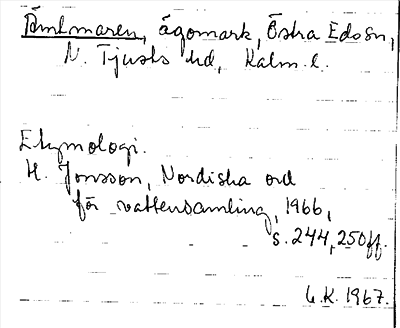 Åmtmaren, ägomark, Östra Eds sn,
N. Tjusts hd, Kalm. l.
Etymologi.
H. Jonsson, Nordiska ord
för vattensamling, 1966,
s. 244, 250ff.
L.K. 1967.